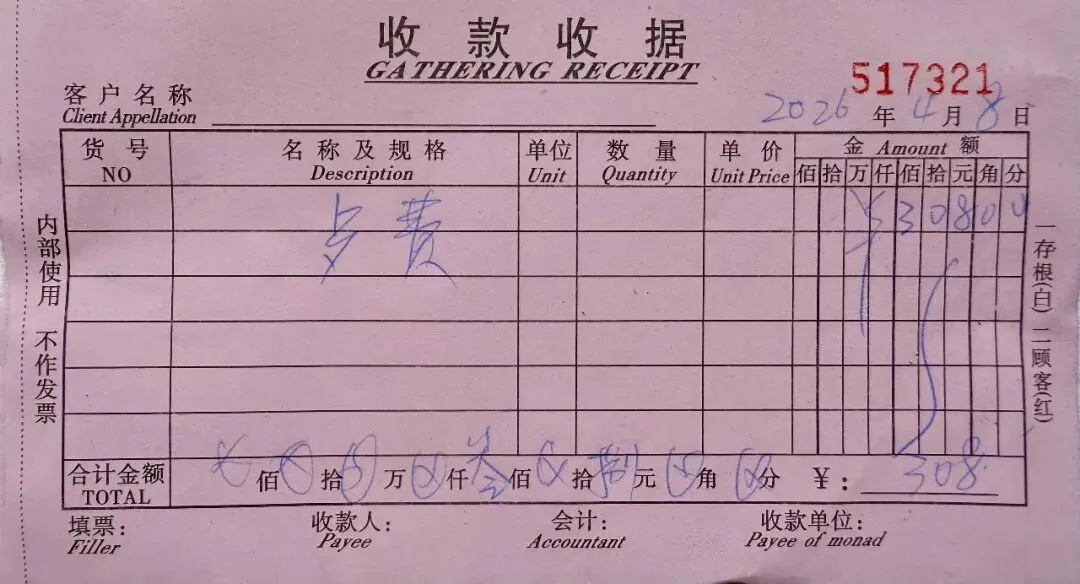 收款收据
GATHERING RECEIPT
517321
客户名称
Client Appellation
2026年4月8日
货号 名称及规格 单位 数量 单价 金 Amount 额
NO Description Unit Quantity Unit Price 佰拾万仟佰拾元角分
费 ¥30800
合计金额 佰 拾 万 仟叁佰 拾捌元 角 分 ¥:308
TOTAL
填票: 收款人: 会计: 收款单位:
Filler Payee Accountant Payee of monad
内部使用 不作发票
一存根(白)二顾客(红)